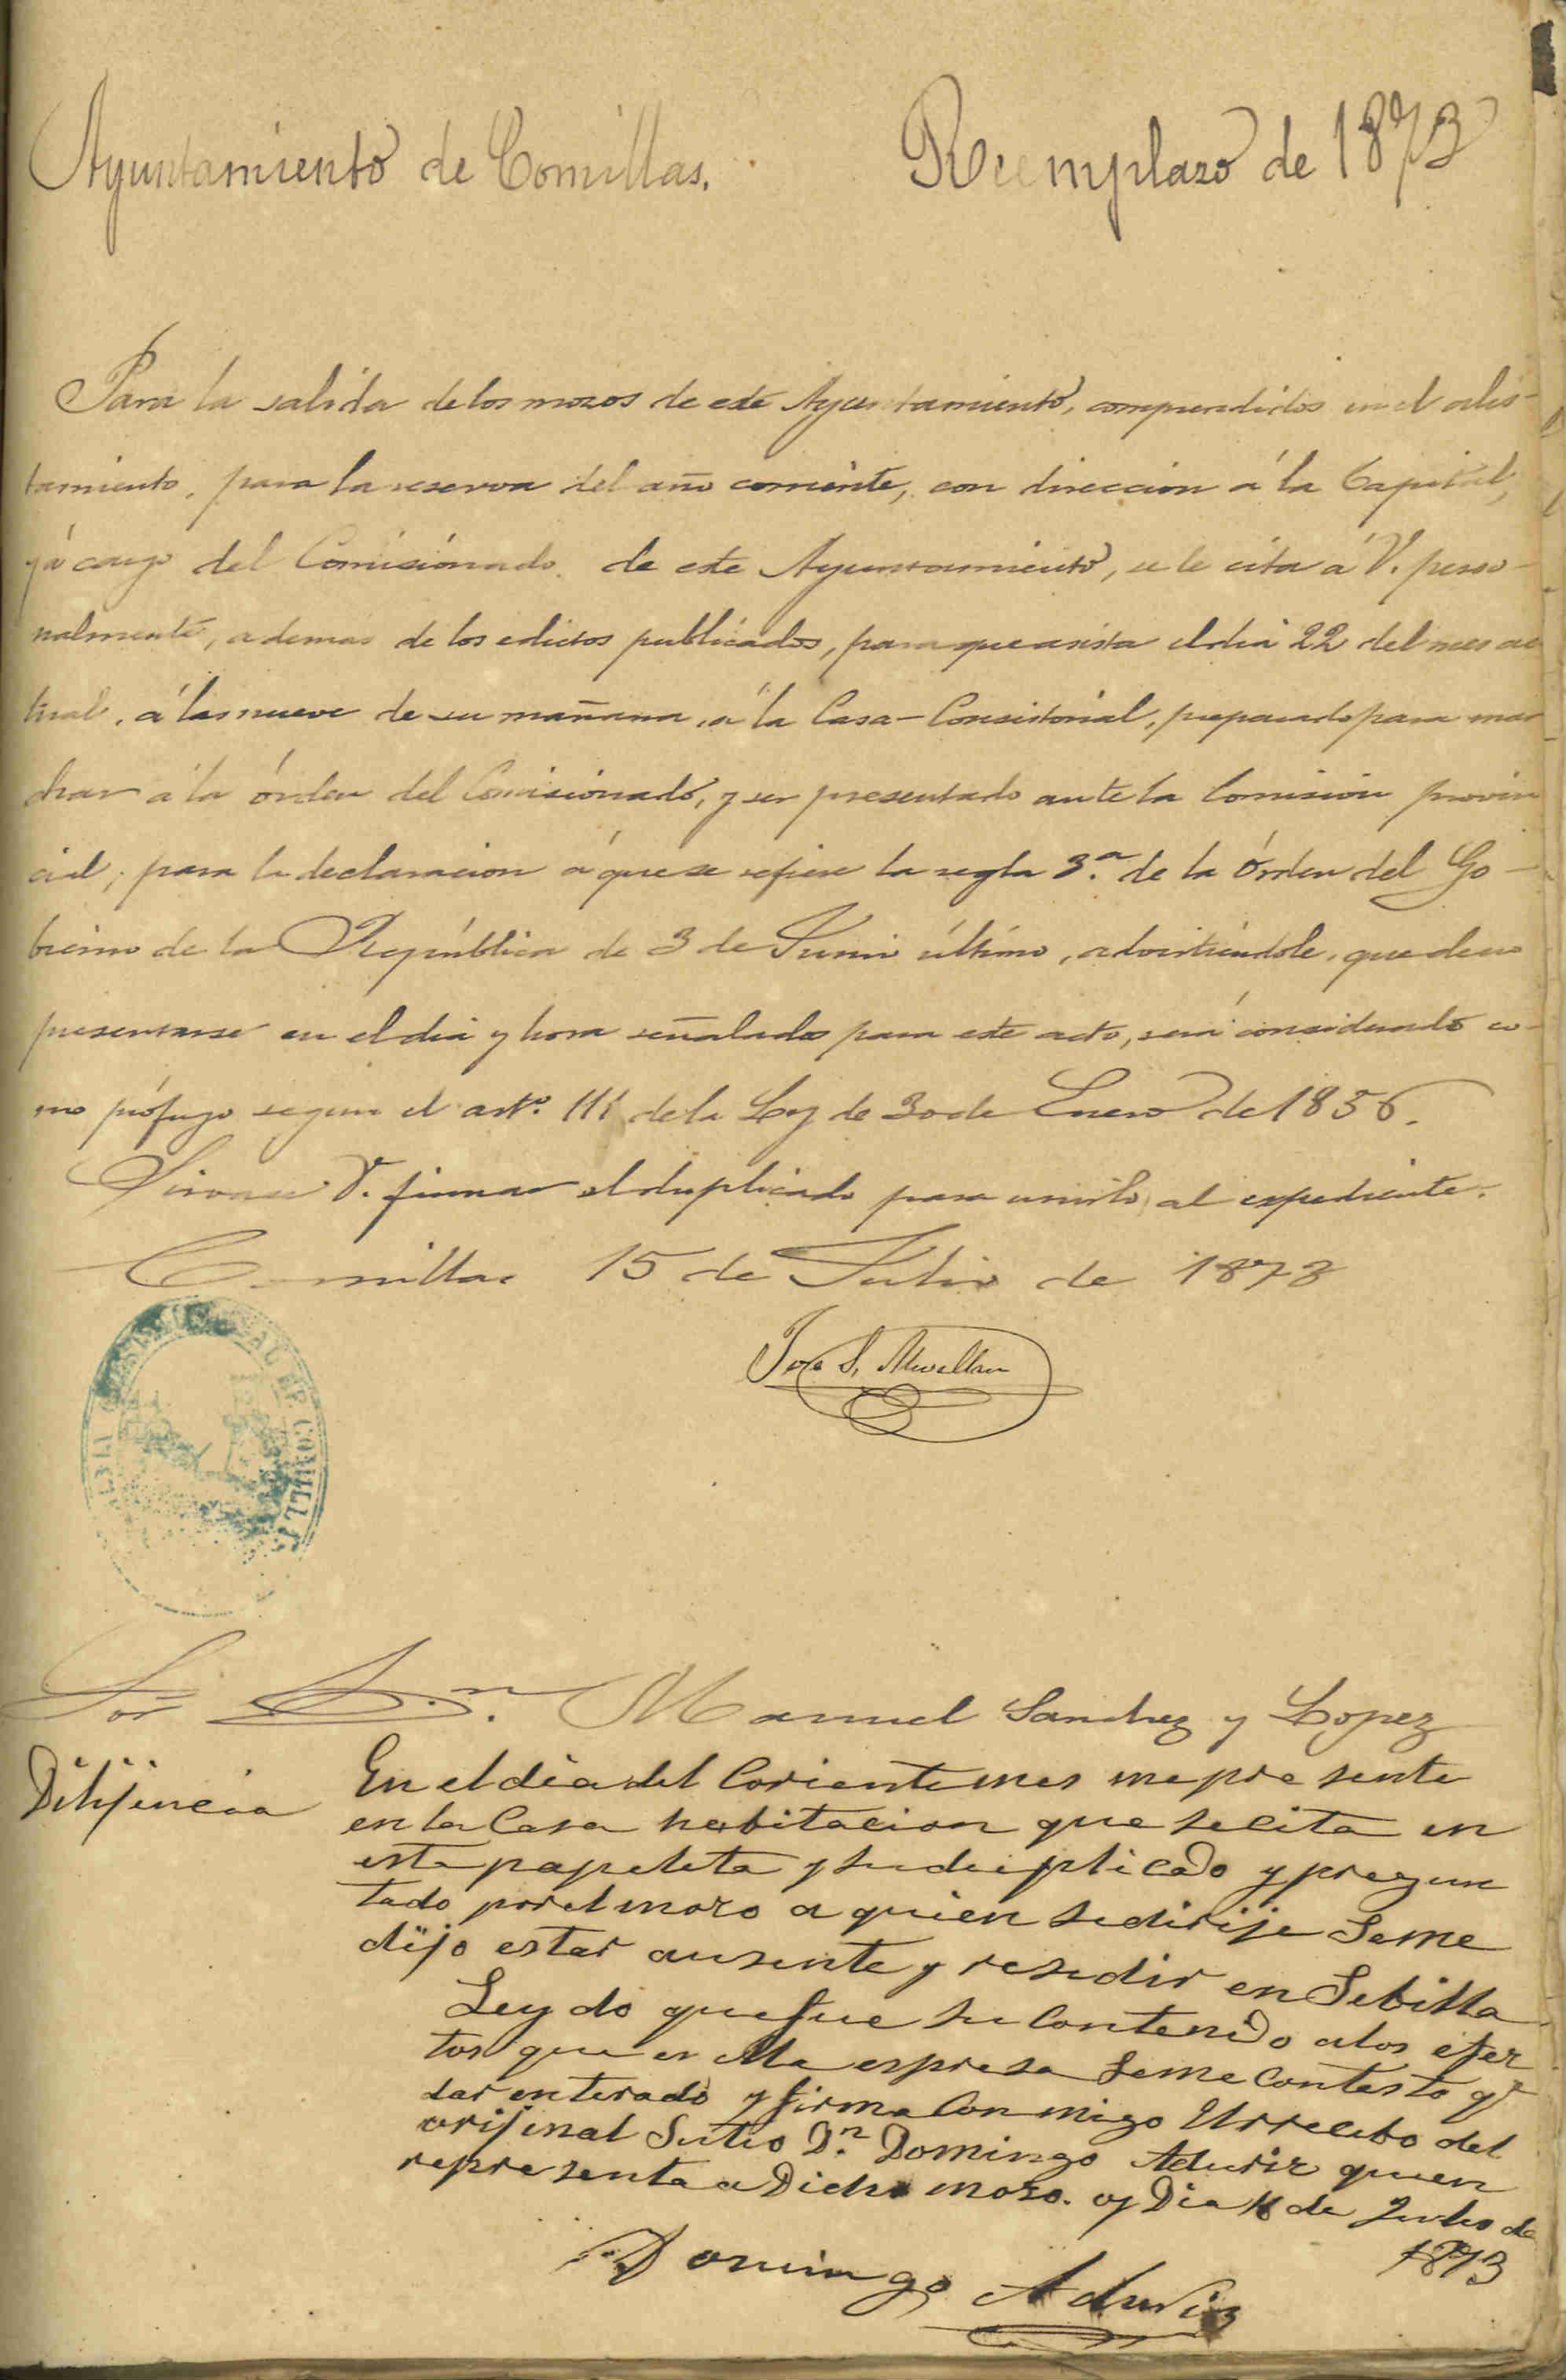 Ayuntamiento de Comillas. Reemplazo de 1873
Para la salida de los mozos de este Ayuntamiento, comprendidos en el alis-
tamiento, para la reserva del año corriente, con direccion á la Capital,
y á cargo del Comisionado de este Ayuntamiento, se le cita á V. perso-
nalmente, ademas de los edictos publicados, para que asista el dia 22 del mes ac
tual, á las nueve de su mañana, á la Casa-Consistorial, preparado para mar
char á la órden del Comisionado, y ser presentado ante la Comision provin
cial, para la declaracion á que se refiere la regla 3.ª de la Órden del Go-
bierno de la República de 3 de Junio último, advirtiéndole, que de no
presentarse en el dia y hora señalados para este acto, será considerado co-
mo prófugo segun el artº. 111 de la Ley de 30 de Enero de 1856.
Sirvase V. firmar el duplicado para unirlo al expediente.
Comillas 15 de Julio de 1873
José S.
COMILLA
Sor Dn. Manuel Sanchez y Lopez
Dilijencia En el dia del Coriente mes me presente
en la Casa habitacion que se cita en
esta papeleta y su duplicado y pregun
tado por el mozo a quien se dirije Se me
dijo estar ausente y resedir en Sebilla
Leydo que fue su Contenido a los efec
tos que en ella espresa Se me Contesto qe
dar enterado y firma Conmigo Urrecebo del
orijinal Su tio Dn. Domingo Aduriz quien
representa a Dicho mozo. oy Dia de Julio de
1873
Domingo Aduriz